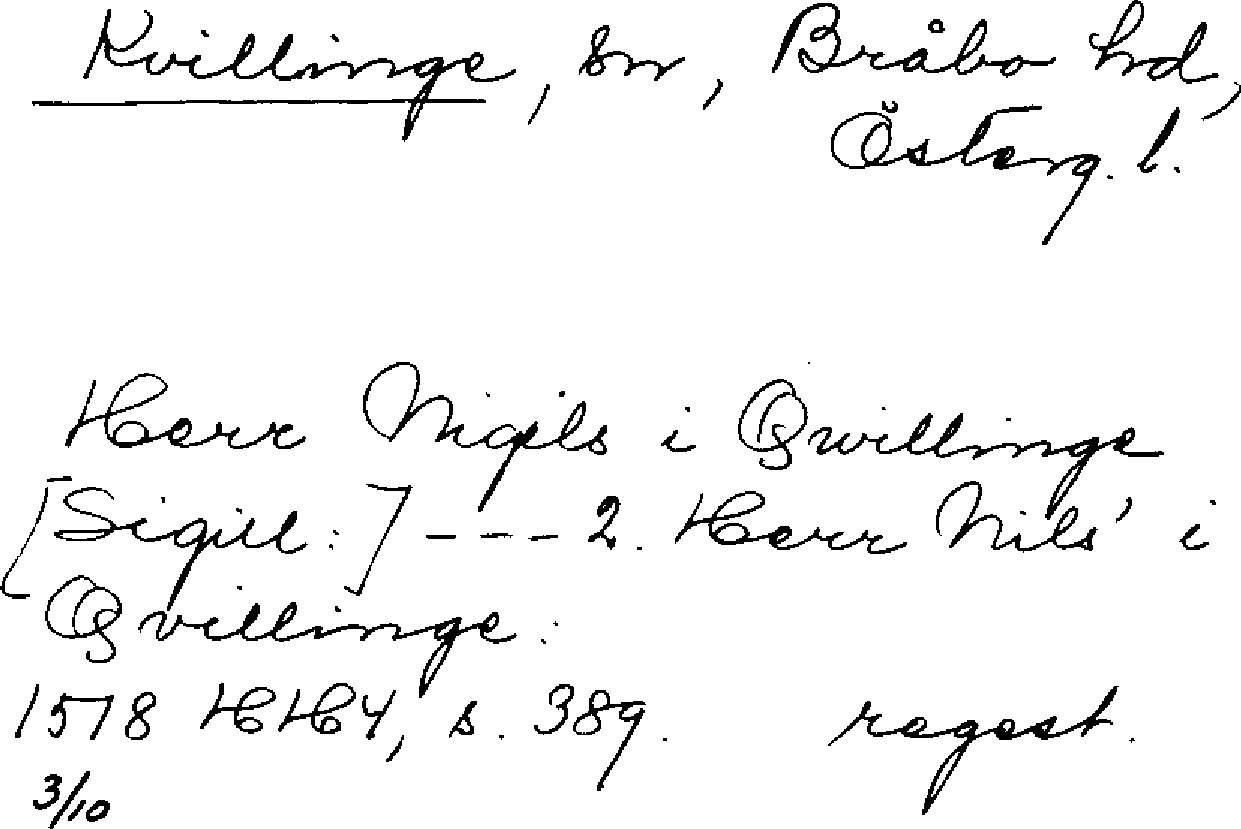 Kvillinge, sn, Bråbo hd,
Österg. l.
Herr Nigils i Qwillinge
[Sigill:] --- 2. Herr Nils' i
Qvillinge:
1578 HH4, s. 389. regest.
3/10